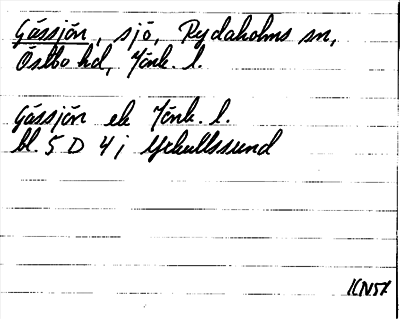 Gåssjön, sjö, Rydaholms sn,
Östbo hd, Jönk. l.
Gåssjön ek Jönk. l.
bl. 5 D 4 j